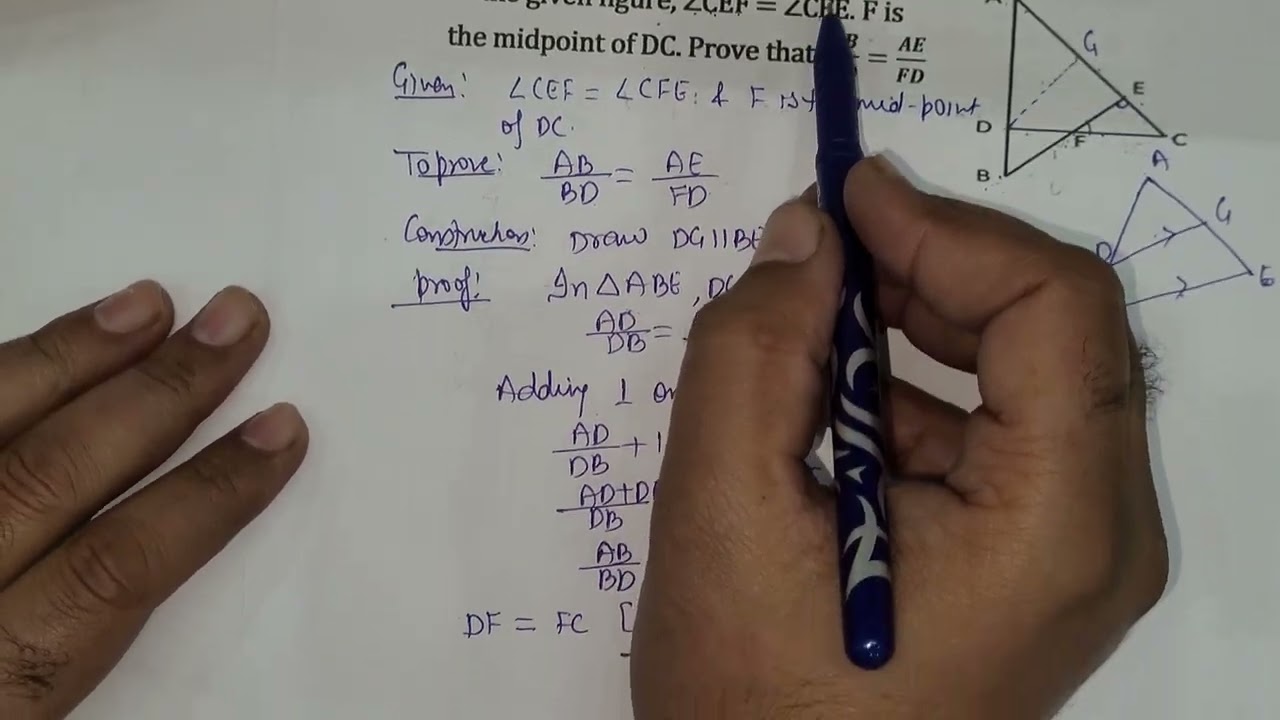 given figure, ∠CEF = ∠CFE. F is
the midpoint of DC. Prove that = AE/FD
Given: ∠CEF = ∠CFE & F is mid-point
of DC.
To prove: AB/BD = AE/FD
Construction: Draw DG || BE
Proof: In △ABE,
AD/DB =
Adding 1
AD/DB + 1
AD+D/DB
AB/BD
DF = FC [
G
E
D
F
C
B
A
G
D
E